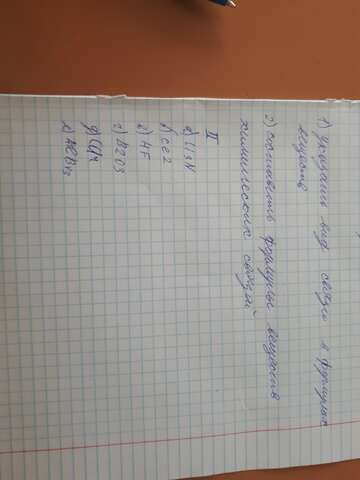 1) указать вид связи в формулах
веществ
2) составить формулы веществ
химических связей
II
а) Li3N
б) Cl2
в) HF
г) B2O3
д) CH4
е) AlBr3